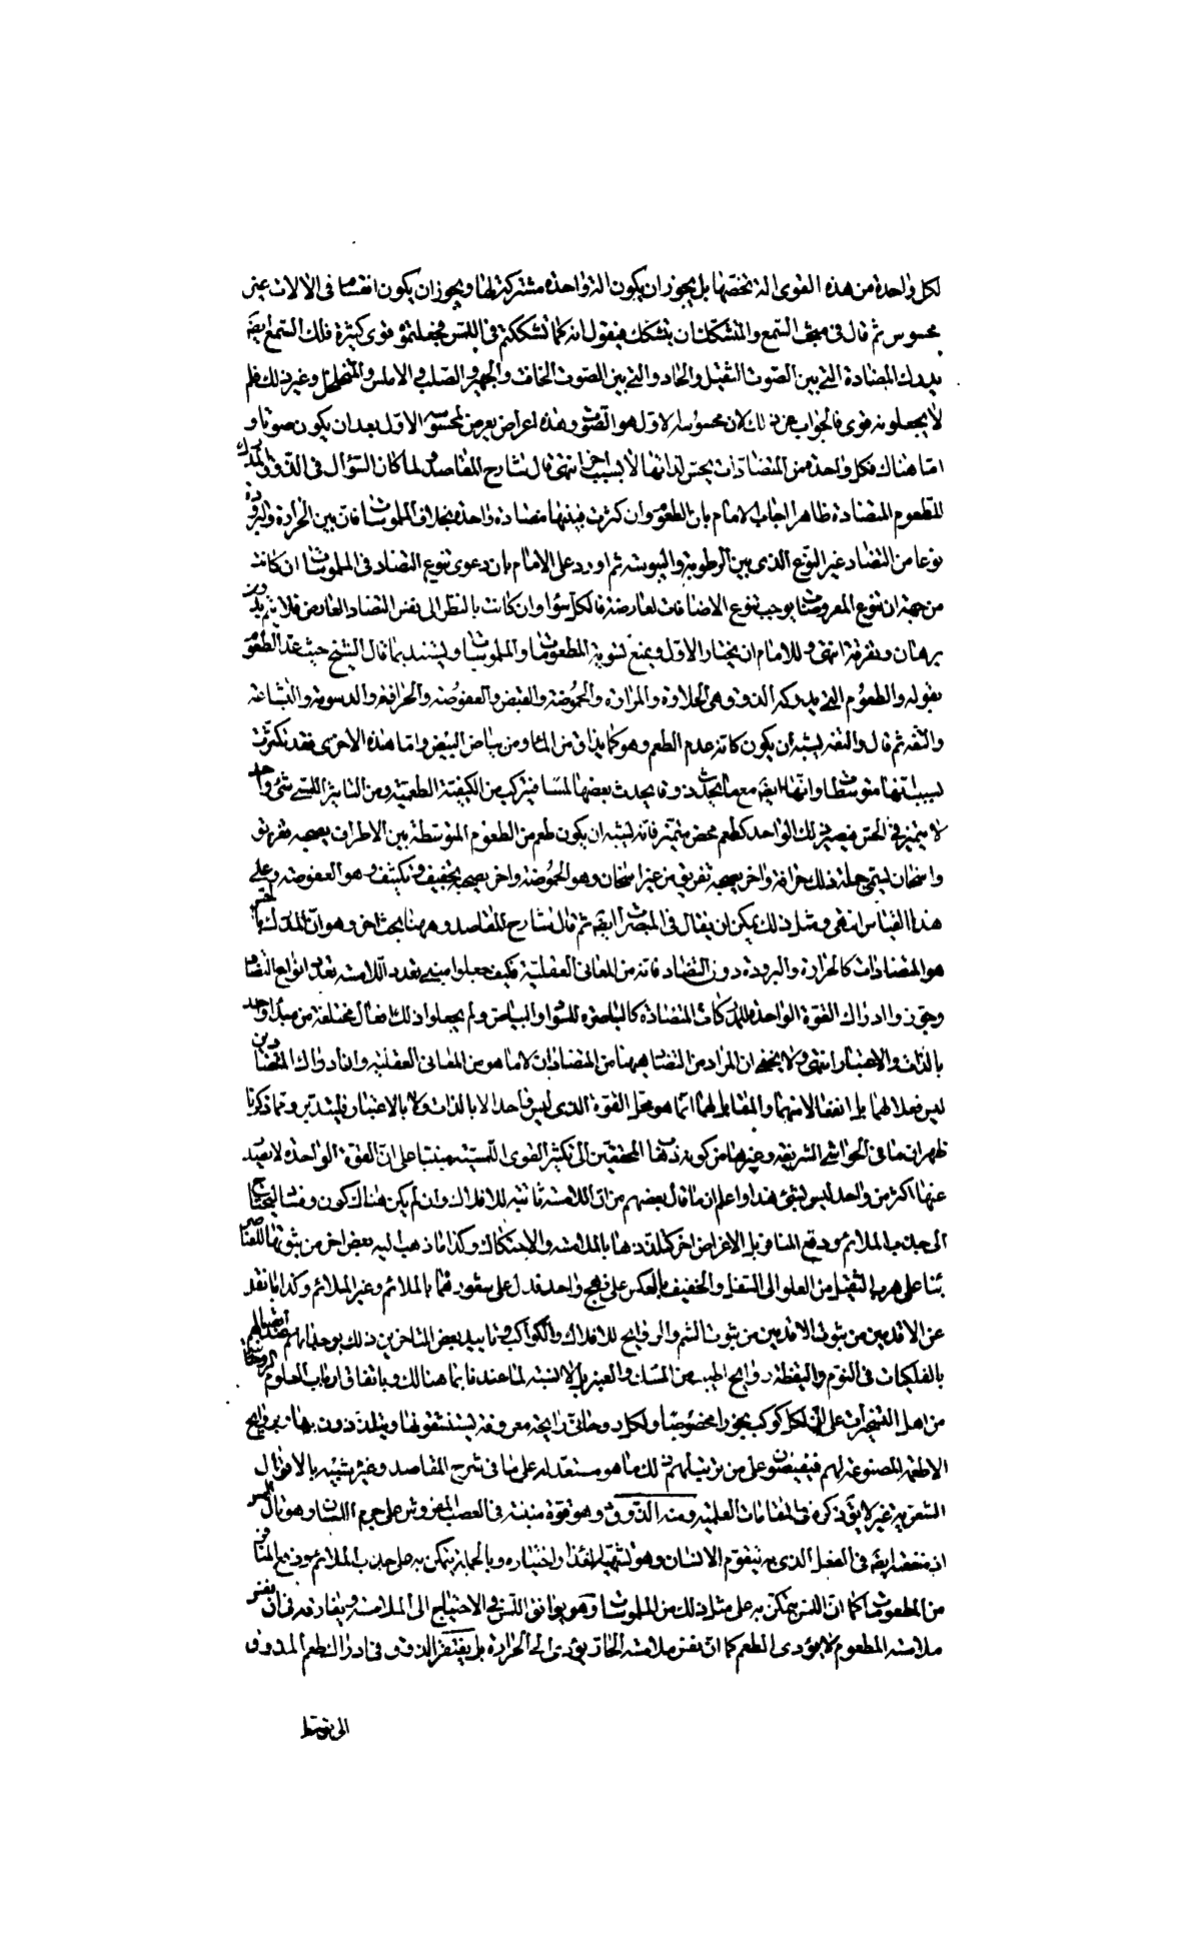 لكل واحدة من هذه القوى الة تخصها بل يجوز ان يكون الة واحدة مشتركة لها ويجوز ان يكون انقسام فى الالات غير
محسوس ثم قال فى مبحث السمع والمتشكك ان يتشكك فيقول انه كما تشككتم فى اللمس فجعلتموه قوى كثيرة فلك السمع ايضا
يدرك المضادة التى بين الصوت الثقيل والحاد والتى بين الصوت الخافت والجهير والصلب والاملس والمتخلخل وغير ذلك فلم
لا يجعلونه قوى فالجواب عن ذلك لان محسوسه الاول هو الصوت وهذه اعراض يعرض لمحسوسه الاول بعد ان يكون صوتا و
اما هناك فكل واحدة من المتضادات يحس لذاتها لا بسبب اخر انتهى قال شارح المقاصد ولما كان السؤال فى الذوق المدرك
للطعوم المتضادة ظاهرا اجاب الامام بان الطعوم وان كثرت فبينها مضادة واحدة بخلاف الملموسات فان بين الحرارة والبرودة
نوعا من التضاد غير النوع الذى بين الرطوبة واليبوسة ثم اورد على الامام بان دعوى تنوع التضاد فى الملموسات ان كانت
من جهة ان تنوع المعروضات يوجب تنوع الاضافات لعارضة فالكل سواء وان كانت بالنظر الى نفس التضاد العارض فلا يتم بدون
برهان وتفرقة انتهى وللامام ان يختار الاول ويمنع تسوية المطعومات والملموسات ويستند بما قال الشيخ حيث عد الطعوم
بقوله والطعوم التى يدركه الذوق هى الحلاوة والمرارة والحموضة والقبض والعفوصة والحرافة والدسومة والبشاعة
والتفه ثم قال والتفه يشبه ان يكون كانه عدم الطعم وهو كما يذاق من الماء ومن بياض البيض واما هذه الاخرى فقد تكثرت
بسبب انها متوسطات وانها ايضا مع ما يحدث ذوقا يحدث بعضها لمسا فيتركب من الكيفية الطعمية ومن التاثير اللمسى شئ واحد
لا يتميز فى الحس فيصير ذلك الواحد كطعم محض متميز فانه يشبه ان يكون طعم من الطعوم المتوسطة بين الاطراف يصحبه تفريق
واسخان ليسمى جملة ذلك حرافة واخر يصحبه تفريق من غير اسخان وهو الحموضة واخر يصحبه تجفيف وتكثيف وهو العفوصة وعلى
هذا القياس انتهى ومثل ذلك يمكن ان يقال فى المبصرات ايضا ثم قال شارح المقاصد وههنا بحث اخر وهو ان المدرك بالحس
هو المتضادات كالحرارة والبرودة دون التضاد فانه من المعانى العقلية فكيف جعلوا مبنى تعدد اللامسة تعدد انواع التضاد
وجوزوا ادراك القوة الواحدة للمدركات المتضادة كالباصرة للسواد والبياض ولم يجعلوا ذلك افعالا مختلفة من مبدا واحد
بالذات والاعتبار انتهى ولا يخفى ان المراد من التضاد ههنا من المتضادان لا ما هو من المعانى العقلية وان ادراك المتضادين
ليس فعلا لهما بل انفعالا منهما والمقابل لهما انما هو محل القوة الذى ليس واحدا لا بالذات ولا بالاعتبار فليتدبر ومما ذكرنا
ظهر ان ما فى الحواشى الشريفة وغيرها من كون ذهاب المحققين الى تكثير القوى اللمسية مبنيا على ان القوة الواحدة لا يصدر
عنها اكثر من واحد ليس بشئ هذا واعلم ان ما قال بعضهم من ان اللامسة ثابتة للافلاك وان لم يكن هناك كون وفساد ليحتاج
الى جذب الملائم ودفع المنافر بل لاغراض اخر كتلذذها بالملامسة والاحتكاك وكذا ما ذهب اليه بعض اخر من ثبوتها للعناصر
بناء على هرب الثقيل من العلو الى السفل والخفيف بالعكس على نهج واحد فدل على شعورهما بالملائم وغير الملائم وكذا ما نقل
عن الاقدمين من ثبوت الشم والروايح للافلاك والكواكب وتاييد بعض المتاخرين ذلك بوجدانهم عند اتصالهم
بالفلكيات فى النوم واليقظة روايح اطيب من المسك والعنبر بل لا نسبة لما عندنا بما هنالك وباتفاق ارباب العلوم الروحانية
من اهل التسخيرات على ان لكل كوكب بخورا مخصوصا ولكل روحانى رايحة معروفة يستنشقونها ويتلذذون بها وبروايح
الاطعمة المصنوعة لهم فيفيضون على من يرتب لهم ذلك ما هو مستعد له على ما فى شرح المقاصد وغيره شبيه بالاقوال
الشعرية غير لايق ذكره فى المقامات العلمية ومنه الذوق وهو قوة منبثة فى العصب المفروش على جرم اللسان وهو تال للمس
اذ منفعته ايضا فى الفعل الذى به يتقوم الانسان وهو تشهية الغذاء واختياره وبالجملة يتمكن به على جذب الملائم ودفع المنافر
من المطعومات كما ان اللمس يتمكن به على مثل ذلك من الملموسات وهو يوافق اللمس فى الاحتياج الى الملامسة ويفارقه فى ان نفس
ملامسة المطعوم لا يؤدى الطعم كما ان نفس ملامسة الحار يؤدى الى الحرارة بل يفتقر الذوق فى ادراك الطعم المذوق
الى توسط